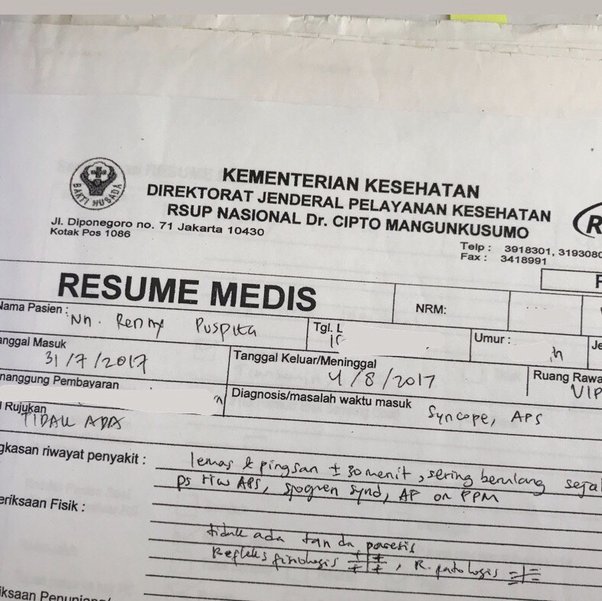 BAKTI HUSADA
KEMENTERIAN KESEHATAN
DIREKTORAT JENDERAL PELAYANAN KESEHATAN
RSUP NASIONAL Dr. CIPTO MANGUNKUSUMO
Jl. Diponegoro no. 71 Jakarta 10430
Kotak Pos 1086
Telp : 3918301, 3193080
Fax : 3418991
RESUME MEDIS
NRM:
Nama Pasien : Nn. Renny Puspita
Tgl. L
Umur :
Je
anggal Masuk
31/7/2017
Tanggal Keluar/Meninggal
4/8/2017
Ruang Rawa
VIP
nanggung Pembayaran
Diagnosis/masalah waktu masuk
Syncope, APS
Rujukan
TIDAK ADA
gkasan riwayat penyakit : lemas & pingsan ± 30 menit, sering berulang seja
ps riw APS, Sjogren Synd, AP on PPM
eriksaan Fisik :
tidak ada tanda paresis
Refleks fisiologis , R. patologis
iksaan Penunjang/